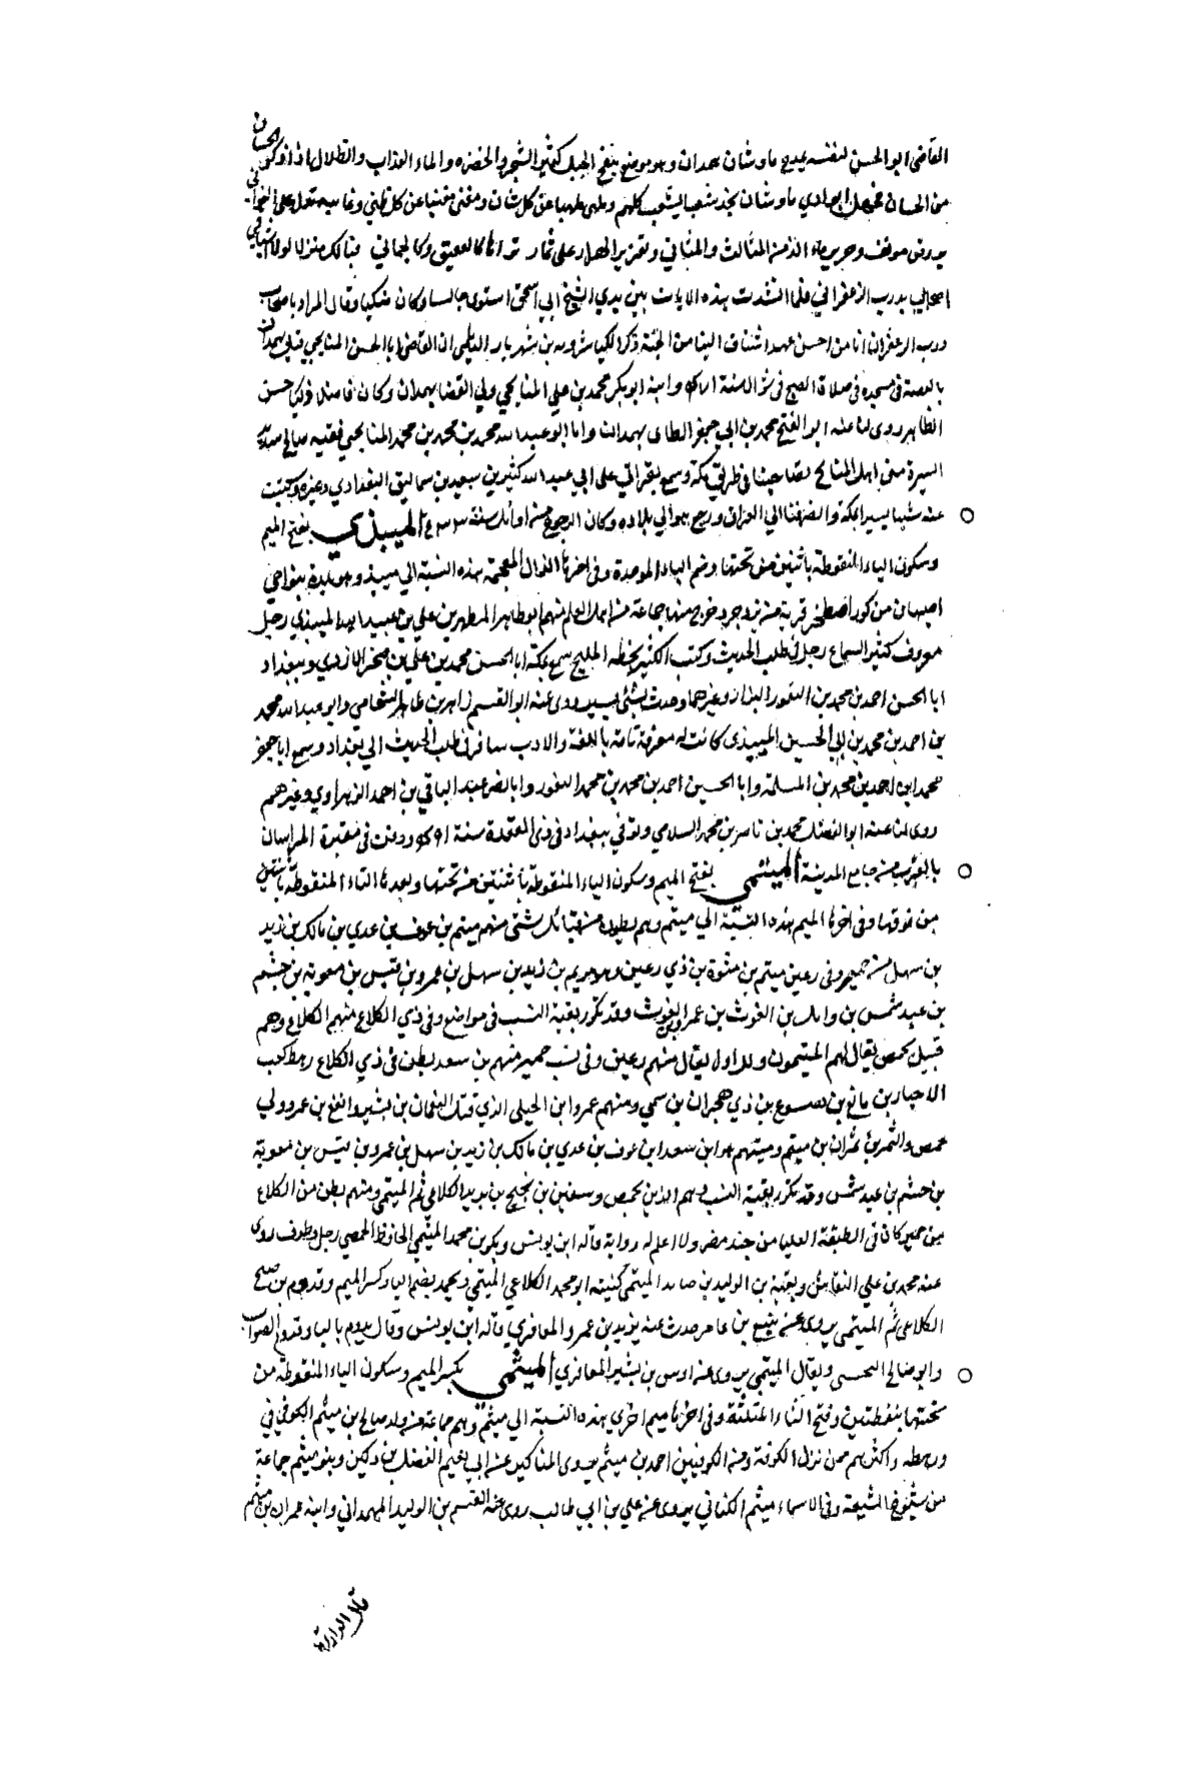 القاضي ابو الحسن لنفسه يمدح ماوشان همدان وهو موضع بفتح الجبل كثير الشجر والخضره والماء العذاب والظلال اذا ذكر الحسان
من الحسان فحيهل لوادي ماوشان تجد شعبا يشعب كل هم وملهى ملهيا عن كل شان ومغنى مغنيا عن كل ظبي وغانيه تدل على الغواني
بروض مونق وخرير ماء الذ من المثالث والمثاني وتغريد الهزار على ثمار تراها كالعقيق وكالجماني فيالك منزلا لولا اشتياقي
اصحابي بدرب الزعفراني فلما انشدت هذه الابيات بين يدي الشيخ ابي اسحق استوى جالسا وكان متكيا وقال المراد باصحاب
درب الزعفران انا من احسن عهدا اشتاق الينا من الجنة ذكر الكيا شيرويه بن شهريار الديلمي ان القاضي ابا الحسن الميانجي قتل بهمدان
في مسجده في صلاة الصبح في شوال سنة وابنه ابو بكر محمد بن علي الميانجي ولي القضا بهمدان وكان فاضلا ذكيا حسن
الظاهر روى لنا عنه ابو الفتح محمد بن ابي جعفر الطائى بهمدان واما ابو عبد الله محمد بن محمد بن محمد الميانجي فقيه صالح سديد
السيرة من اهل الميانج تصاحبنا في طريق مكة وسمع بقراتي على ابي عبد الله كثير بن سعيد بن شماليق البغدادي وغيره وكتبت
عنه شيا يسيرا بمكة وانصرفنا الى العراق ورجع هو الى بلاده وكان الرجوع من اوائل سنة الميبذي بفتح الميم
وسكون الياء المنقوطة باثنتين من تحتها وضم الباء الموحدة وفى اخرها الذال المعجمة هذه النسبة الى ميبذ وهى بليدة بنواحي
اصبهان من كور اصطخر قريبة من يزدجرد خرج منها جماعة من اهل العلم منهم ابو طاهر المطهر بن علي بن عبيد الله الميبذي رحل
معروف كثير السماع رحل في طلب الحديث وكتب الكثير بخطه المليح سمع بمكة ابا الحسن محمد بن علي بن صخر الازدي وببغداد
ابا الحسن احمد بن محمد بن النقور البزاز وغيرهما وحدث بشئ يسير روى عنه ابو القسم زاهر بن طاهر الشحامي وابو عبد الله محمد
بن احمد بن محمد بن ابي الحسين الميبذى كانت له معرفة تامة باللغة والادب سافر في طلب الحديث الى بغداد وسمع ابا جعفر
محمد بن احمد بن محمد بن المسلمة وابا الحسين احمد بن محمد بن محمد النقور وابا نصر عبد الباقي بن احمد الزهراوي وغيرهم
روى لنا عنه ابو الفضل محمد بن ناصر بن محمد السلامي وتوفى ببغداد في ذى القعدة سنة ودفن في مقبرة المراسان
بالقرب من جامع المدينة الميتمى بفتح الميم وسكون الياء المنقوطة باثنتين من تحتها وبعدها التاء المنقوطة باثنتين
من فوقها وفى اخرها الميم هذه النسبة الى ميتم وهم بطون من قبائل شتى منهم ميتم بن عوف بن عدي بن مالك بن زيد
بن سهل من حمير وفى رعين ميتم بن مثوة بن ذي رعين بن زيد بن سهل بن عمرو بن قيس بن معوية بن جشم
بن عبد شمس بن وائل بن الغوث بن عمرو بن الغوث وقد تكرر بقية النسب فى مواضع وفى ذي الكلاع منهم الكلاع وهم
قبيل بحمص يقال لهم الميتمون وللاول يقال منهم رعين وفى نسب حمير منهم بن سعد بطن فى ذي الكلاع رهط كعب
الاحبار بن ماتع بن هيسوع بن ذي هجران بن سمي ومنهم عمرو ابن الحيلى الذي قتل النعمان بن بشير وانغ بن عمرو ولي
حمص والثمر بن ثمران بن ميتم وميتم هو ابن سعد ابن عوف بن عدي بن مالك بن زيد بن سهل بن عمرو بن قيس بن معوية
بن جشم بن عبد شمس وقد تكرر بقية النسب وهم الذين بحمص وسفين بن نجيح بن يزيد الكلاعي ثم الميتمى ومنهم بطن من الكلاع
من حمير كان في الطبقة العليا من جند مصر ولا اعلم له رواية قاله ابن يونس وبكر بن محمد الميتمي الحافظ الحمصي رجل وظرف روى
عنه محمد بن علي النقاش وبقية بن الوليد بن صايد الميتمى كنيته ابو محمد الكلاعي الميتمي ويحمد بضم اليا وكسر الميم وقدوم بن صبح
الكلاعى ثم الميتمى يروى عنه تبيع بن عامر حدث عنه يزيد بن عمرو المعافري قاله ابن يونس وقال يدوم باليا وقدوم الصواب
وابو صالح ويقال الميتمي يروى عنه اوس بن بشير المعافري الميثمى بكسر الميم وسكون الياء المنقوطة من
تحتها بنقطتين وفتح الثاء المثلثة وفى اخرها ميم اخرى هذه النسبة الى ميثم وهم جماعة من ولد صالح بن ميثم الكوفي في
ورهطه واكثرهم ممن نزل الكوفة ومن الكوفيين احمد بن ميثم يروى المناكير عن ابي نعيم الفضل بن دكين وبنو ميثم جماعة
من شيوخ الشيعة وفى الاسماء ميثم الكناني يروى عن علي بن ابي طالب روى عنه القسم بن الوليد الهمداني وابنه عمران بن ميثم